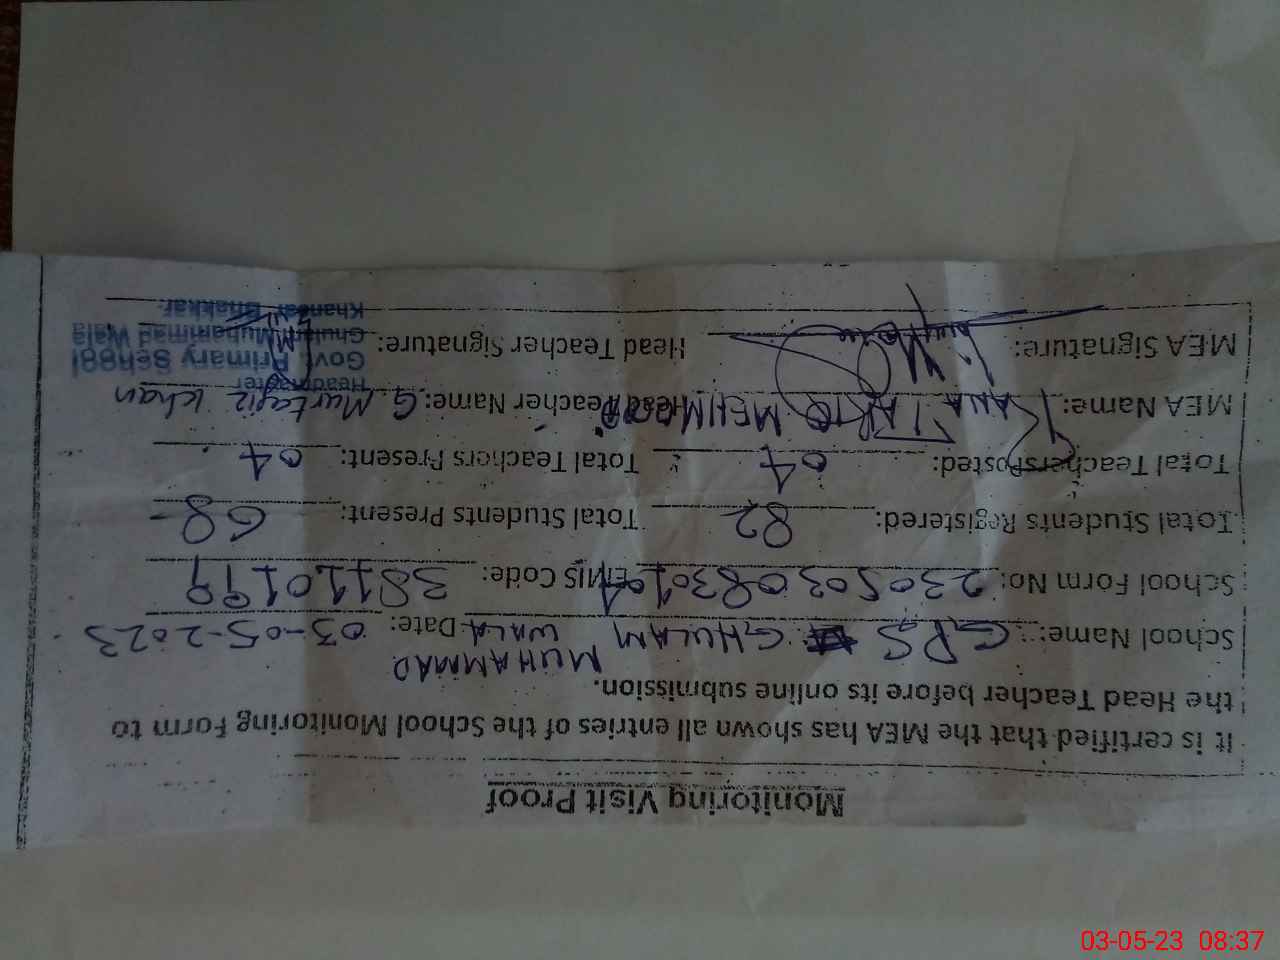 Monitoring Visit Proof
It is certified that the MEA has shown all entries of the School Monitoring Form to
the Head Teacher before its online submission.
School Name: GPS GHULAM MUHAMMAD WALA Date: 03-05-2023
School Form No: 2305030830104 EMIS Code: 38110199
Total Students Registered: 82 Total Students Present: 68
Total Teachers Posted: 04 Total Teachers Present: 04
MEA Name: RANA TARIQ MEHMOOD Head Teacher Name: G. Murtaza Khan
MEA Signature: Head Teacher Signature:
Headmaster
Govt. Primary School
Ghulam Muhammad Wala
Khansar Bhakkar
03-05-23 08:37